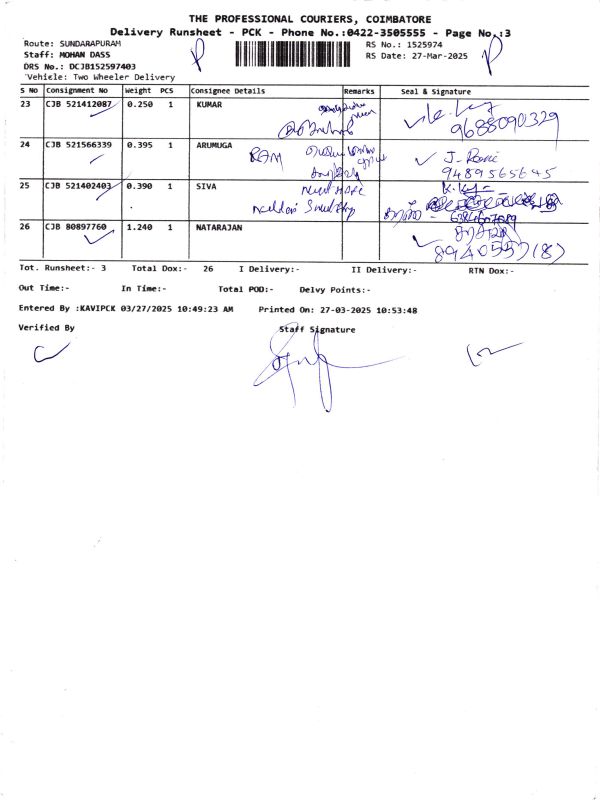 THE PROFESSIONAL COURIERS, COIMBATORE
Delivery Runsheet - PCK - Phone No.:0422-3505555 - Page No.:3
Route: SUNDARAPURAM
RS No.: 1525974
Staff: MOHAN DASS
RS Date: 27-Mar-2025
DRS No.: DCJB152597403
Vehicle: Two Wheeler Delivery
S No Consignment No Weight PCS Consignee Details Remarks Seal & Signature
23 CJB 521412087 0.250 1 KUMAR
9688090329
24 CJB 521566339 0.395 1 ARUMUGA
RAM
J. Rani
9489565645
25 CJB 521402403 0.390 1 SIVA
26 CJB 80897760 1.240 1 NATARAJAN
Tot. Runsheet:- 3 Total Dox:- 26 I Delivery:- II Delivery:- RTN Dox:-
Out Time:- In Time:- Total POD:- Delvy Points:-
Entered By :KAVIPCK 03/27/2025 10:49:23 AM Printed On: 27-03-2025 10:53:48
Verified By Staff Signature